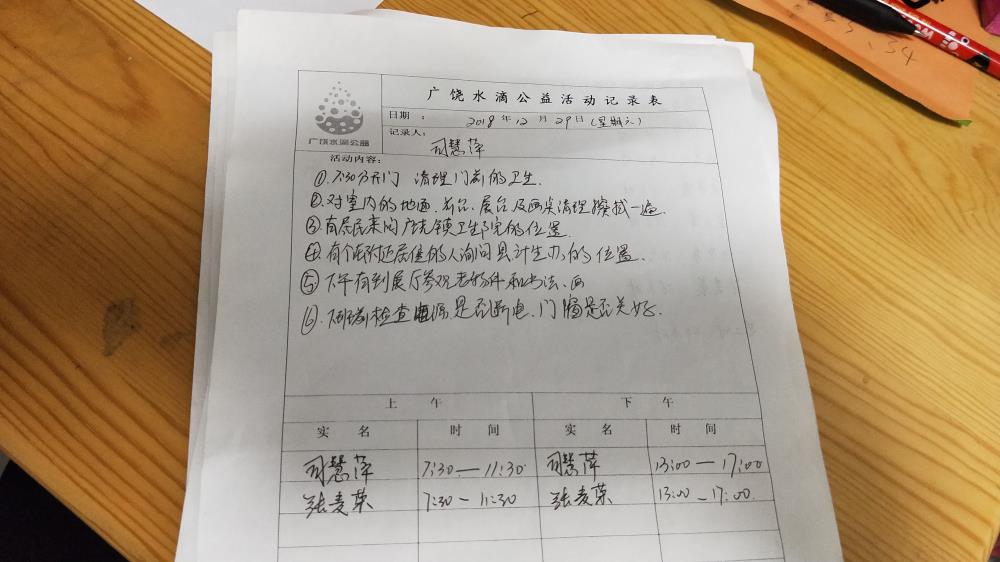 广饶水滴公益活动记录表
广饶水滴公益
日期： 2018年12月29日(星期六)
记录人： 司慧萍
活动内容：
①.7:30分开门 清理门前的卫生.
②.对室内的地面.茶台.展台及画案清理擦拭一遍.
③有居民来问广饶镇卫生院的位置.
④有个在附近居住的人询问县计生办的位置.
⑤下午有到展厅参观老物件和书法、画
⑥.检查电源.是否断电.门窗是否关好.
上午 下午
实名 时间 实名 时间
司慧萍 7:30—11:30 司慧萍 13:00—17:00
张麦荣 7:30-11:30 张麦荣 13:00-17:00.